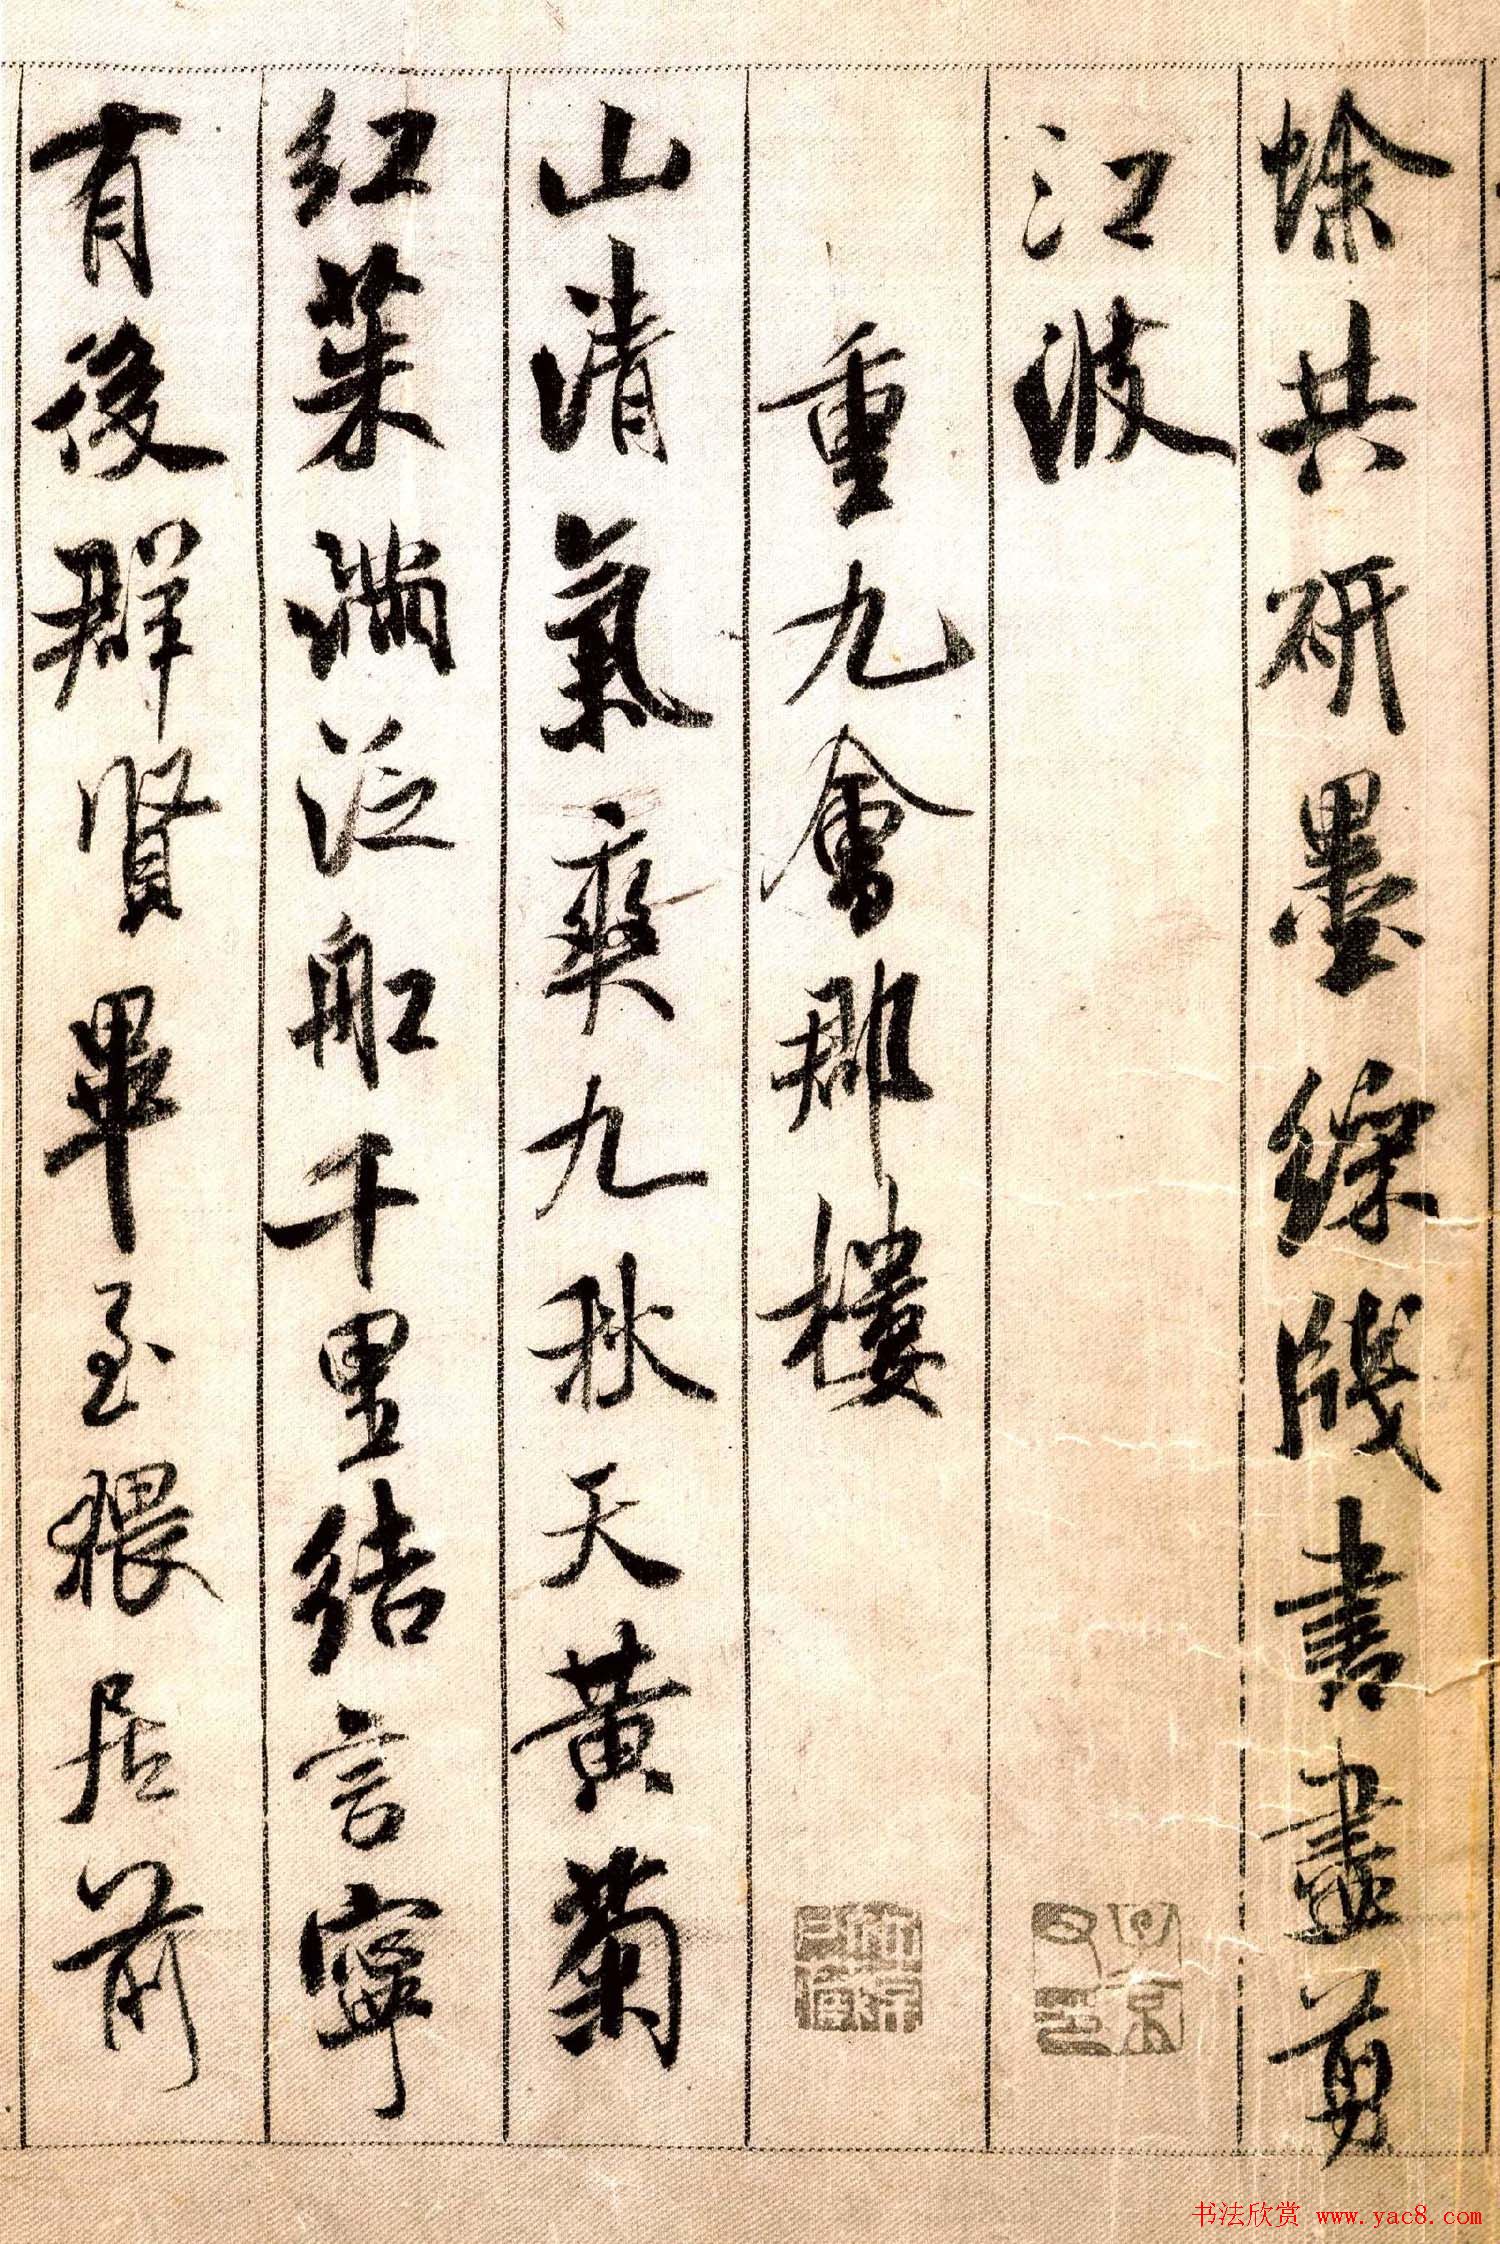 蜍共研墨綵牋書盡剪
江波
重九會郡樓
山清氣爽九秋天黃菊
紅茱滿泛舡千里結言寧
有後群賢畢至猥居前
书法欣赏 www.yac8.com